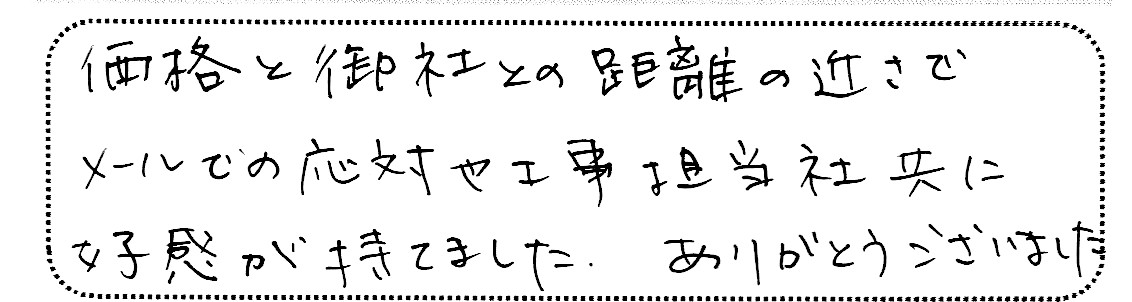 価格と御社との距離の近さで
メールでの応対や工事担当社共に
好感が持てました. ありがとうございました